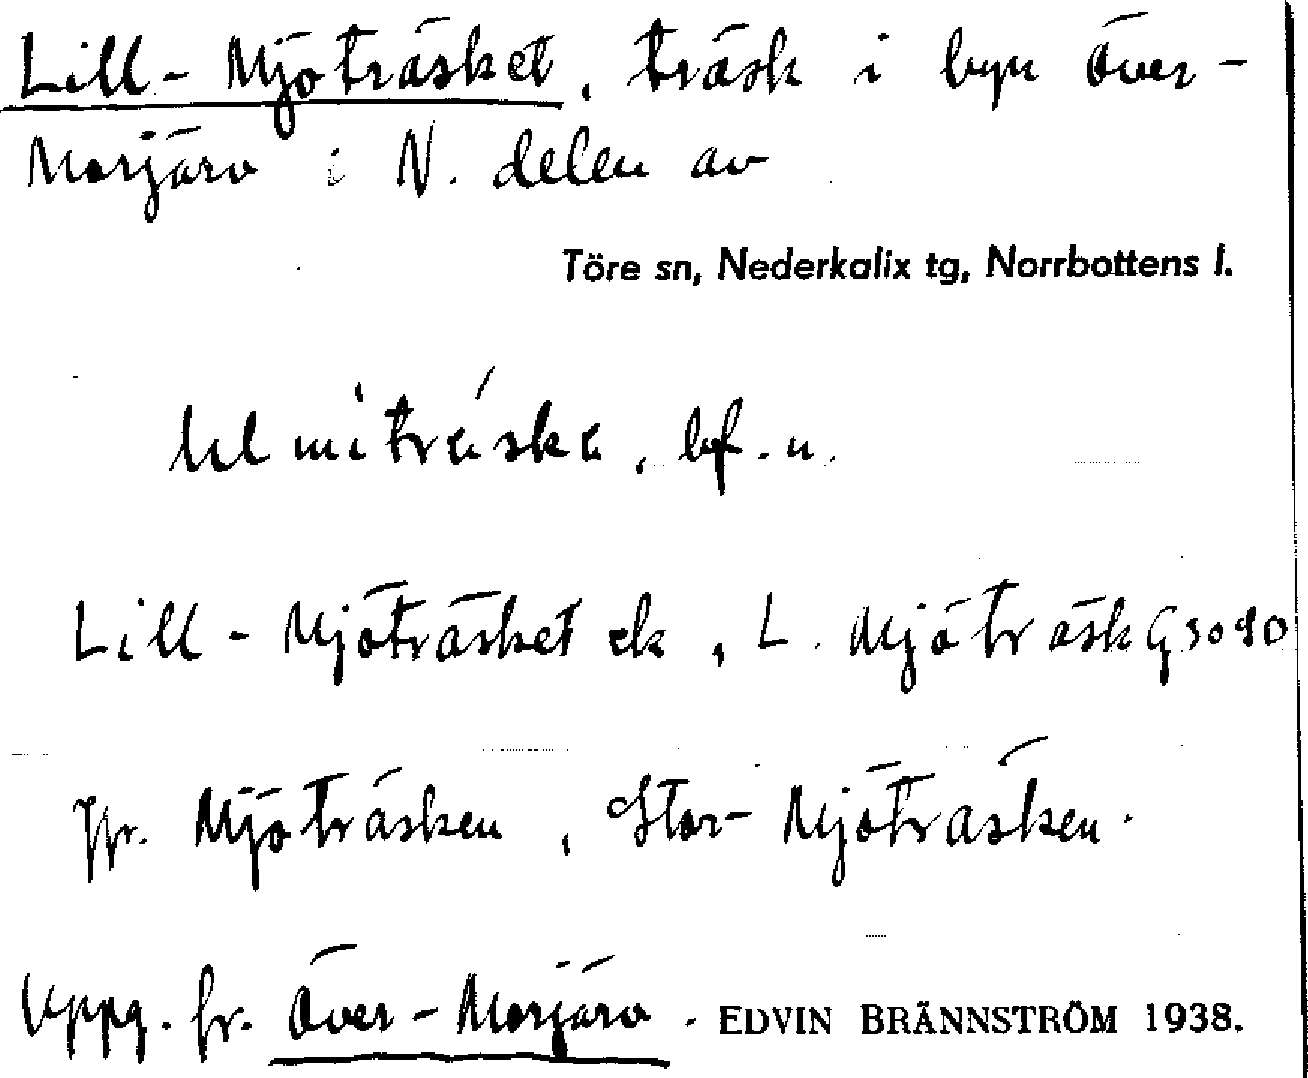 Lill-Mjöträsket, träsk i byn Över-
Morjärv i N. delen av
Töre sn, Nederkalix tg, Norrbottens l.
bf. n.
Lill-Mjöträsket ek, L. Mjöträsk G
Jfr. Mjöträsken, Stor-Mjöträsken.
Uppg. fr. Över-Morjärv. EDVIN BRÄNNSTRÖM 1938.